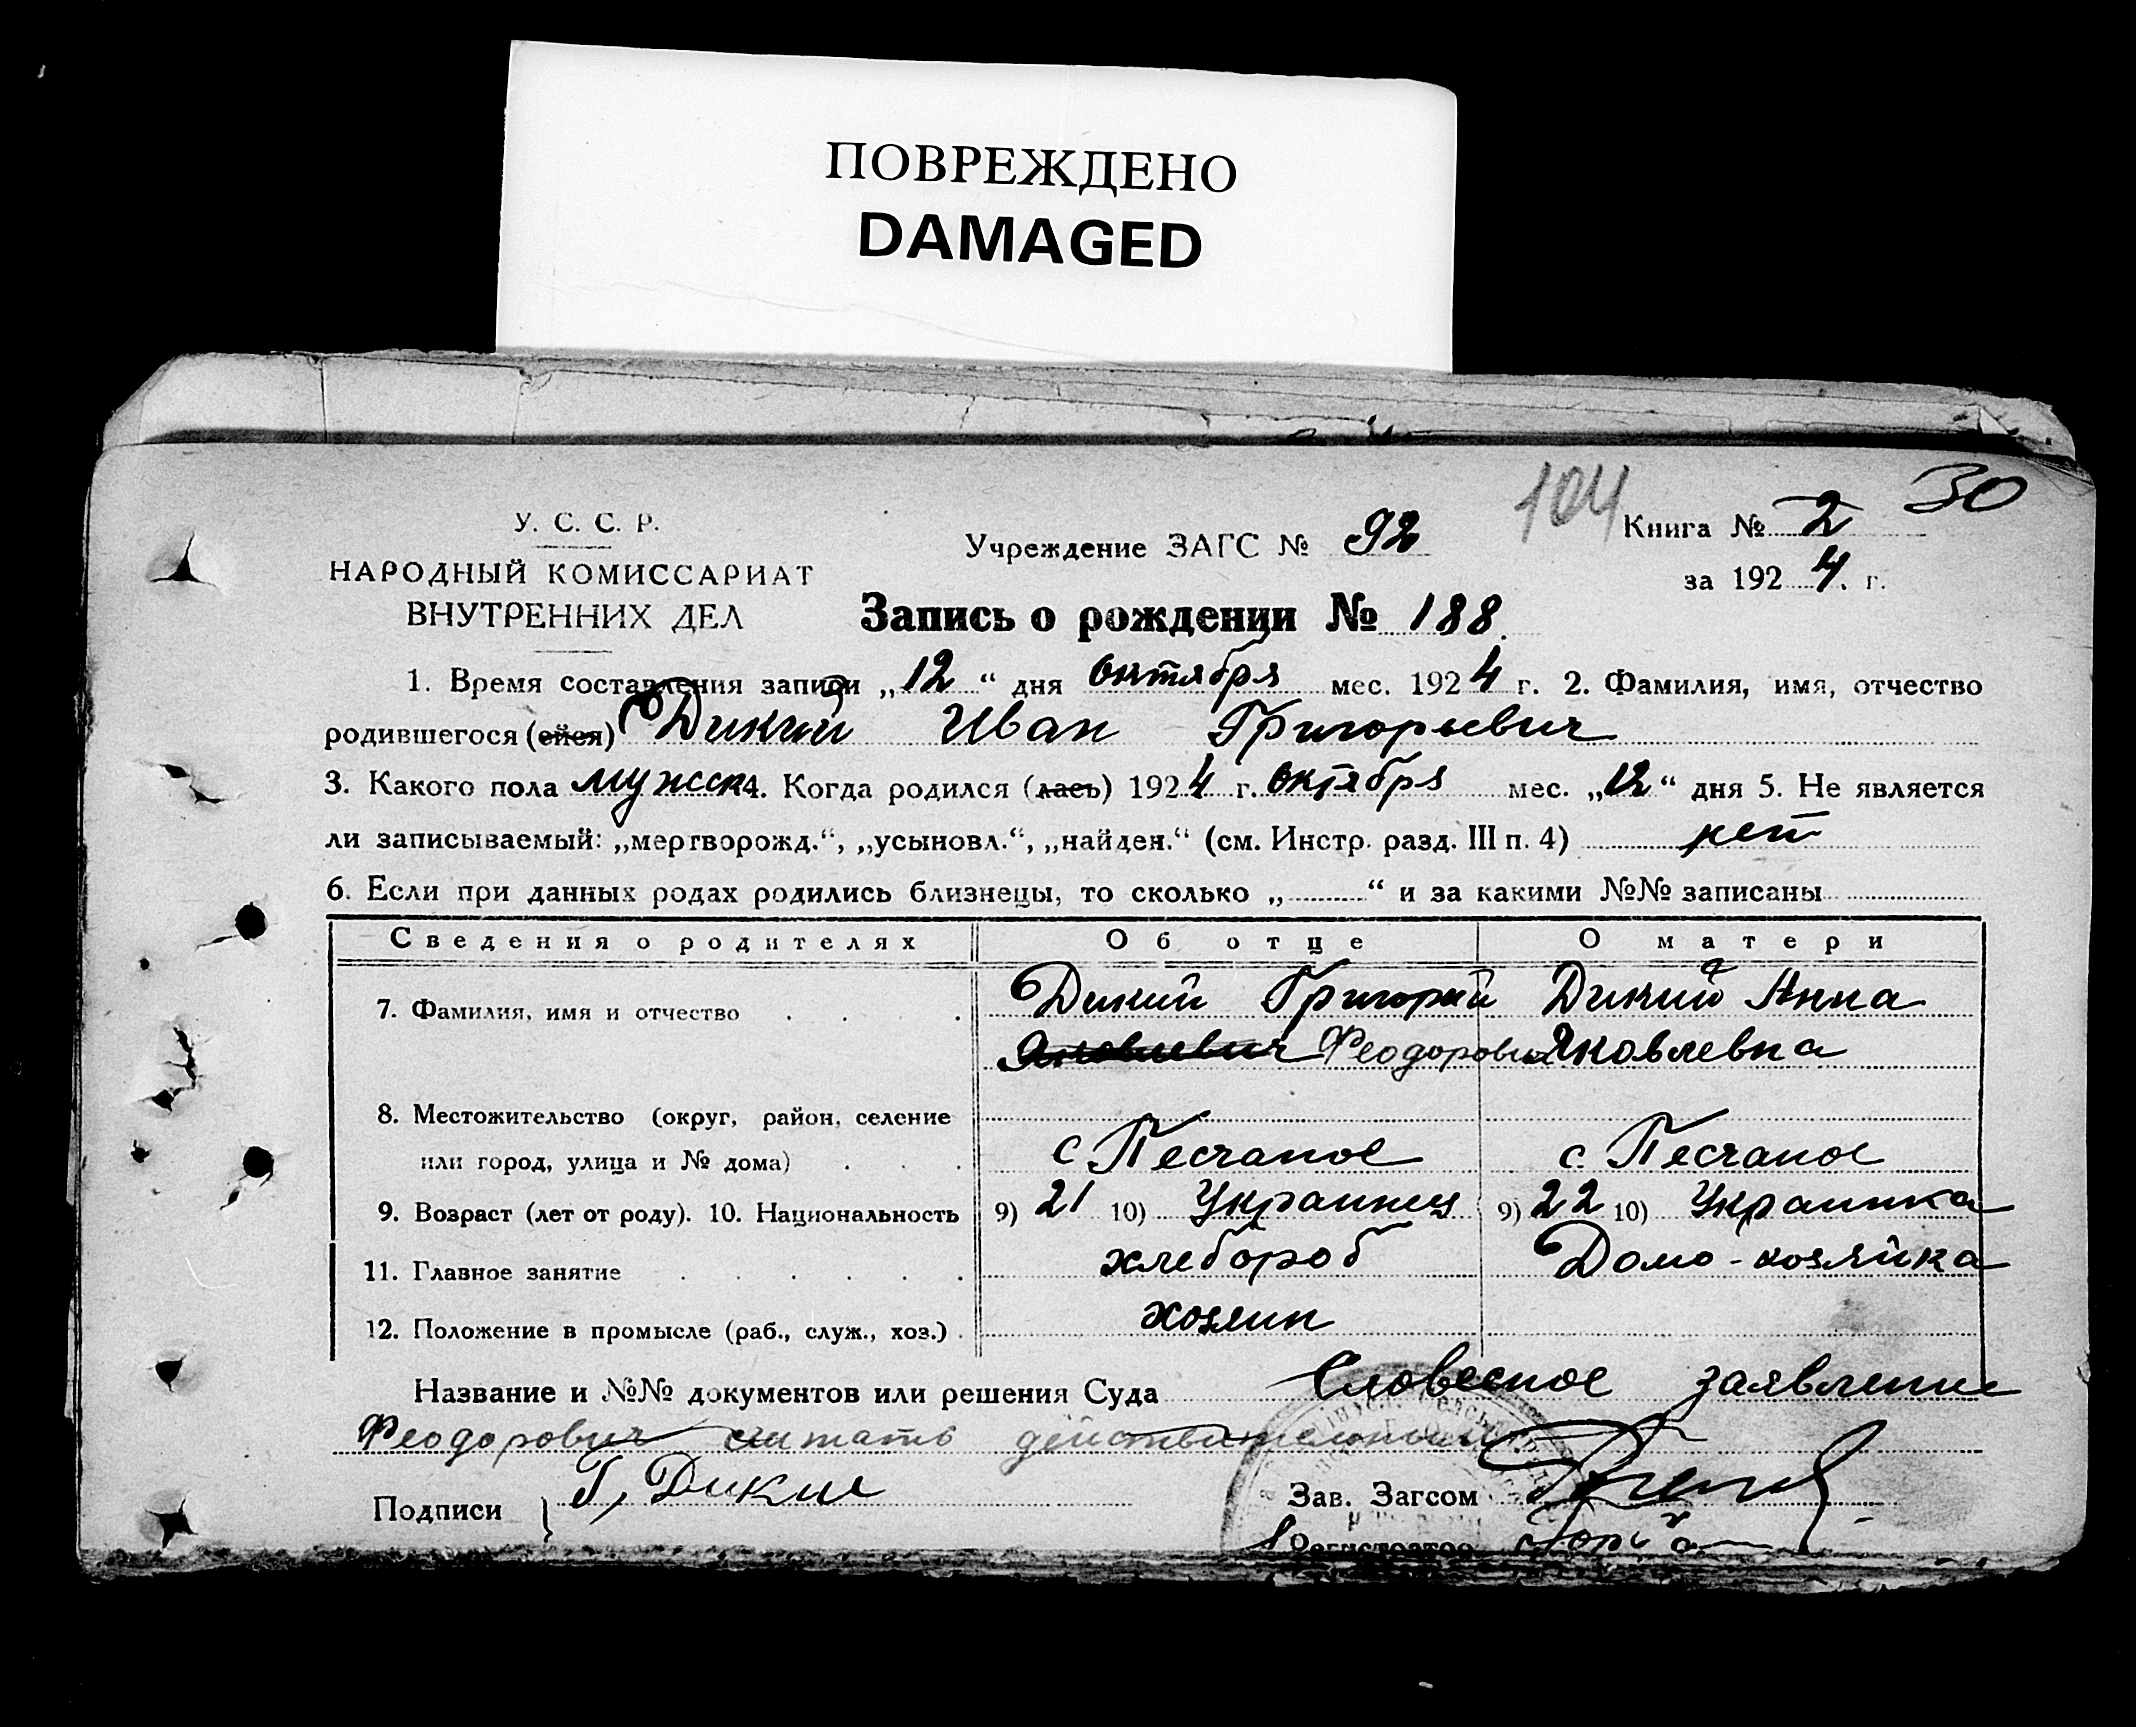 ПОВРЕЖДЕНО
DAMAGED
104 30
У. С. С. Р.
НАРОДНЫЙ КОМИССАРИАТ
ВНУТРЕННИХ ДЕЛ
Учреждение ЗАГС № 92
Книга № 2
за 1924. г.
Запись о рождении № 188.
1. Время составления записи „12“ дня октября мес. 1924 г. 2. Фамилия, имя, отчество
родившегося (ейся) Дикий Иван Григорьевич
3. Какого пола мужск 4. Когда родился (лась) 1924 г. октября мес. „12“ дня 5. Не является
ли записываемый: „мертворожд.“, „усыновл.“, „найден.“ (см. Инстр. разд. III п. 4) нет
6. Если при данных родах родились близнецы, то сколько „..........“ и за какими №№ записаны
Сведения о родителях Об отце О матери
7. Фамилия, имя и отчество . . . . Дикий Григорий Дикий Анна
Яковлевич Феодорович Яковлевна
8. Местожительство (округ, район, селение
или город, улица и № дома) . . . с Песчаное с. Песчаное
9. Возраст (лет от роду). 10. Национальность 9) 21 10) Украинец 9) 22 10) Украинка
11. Главное занятие . . . . . . хлебороб Домо-хозяйка
12. Положение в промысле (раб., служ., хоз.) . хозяин
Название и №№ документов или решения Суда Словесное заявление
Феодорович считать действительным
Подписи } Г, Дикий
Зав. Загсом
Регистратор